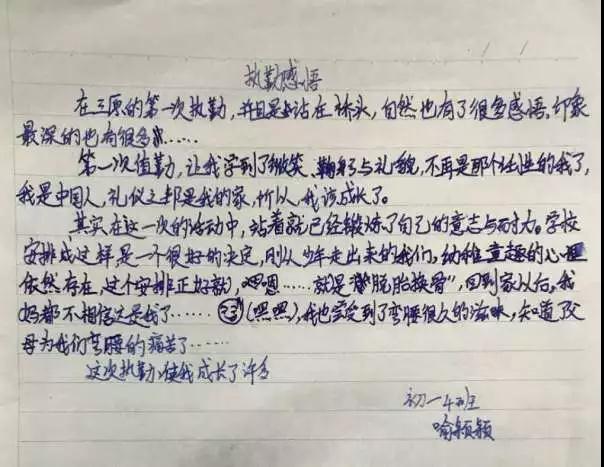 执勤感悟
在三原的第一次执勤,并且是站在桥头,自然也有了很多感悟,印象
最深的也有很多……
第一次值勤,让我学到了微笑、鞠躬与礼貌,不再是那个任性的我了,
我是中国人,礼仪之邦是我的家,所以,我该成长了。
其实在这一次的活动中,站着就已经锻炼了自己的意志与耐力。学校
安排成这样,是一个很好的决定,刚从少年走出来的我们,幼稚童趣的心理
依然存在,这个安排正好就,嗯嗯……就是“脱胎换骨”,回到家以后,我
妈都不相信这是我了……(嘿嘿),我也尝受到了弯腰很久的滋味,知道了父
母为我们弯腰的痛苦了……
这次执勤,使我成长了许多
初一4班
喻颖颖